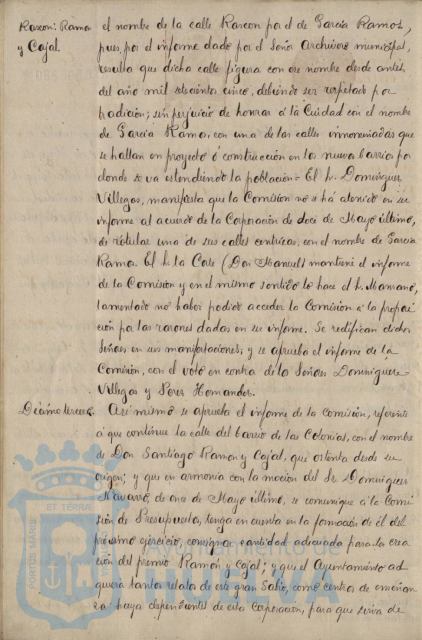 Rascon: Ramon
y Cajal.
el nombre de la calle Rascon por el de García Ramos,
pues, por el informe dado por el Señor Archivero municipal,
resulta que dicha calle figura con ese nombre desde antes
del año mil seiscientos cinco, debiendo ser respetado por
tradición; sin perjuicio de honrar a la Ciudad con el nombre
de García Ramos, con una de las calles innominadas que
se hallan en proyecto ó construcción en los nuevos barrios por
donde se va extendiendo la población = El Sr. Dominguez
Villegas, manifiesta que la Comisión no se há atenido en su
informe al acuerdo de la Corporación de doce de Mayo último,
de rotular una de sus calles centricas, con el nombre de García
Ramos. El Sr. de la Corte (Don Manuel) mantiene el informe
de la Comisión y en el mismo sentido lo hace el Sr.
lamentado no haber podido acceder la Comisión a la proposi
ción por las razones dadas en su informe. Se redifican dichos
Señores en sus manifestaciones, y se aprueba el informe de la
Comisión, con el voto en contra de los Señores Dominguez
Villegas y Perez Hernandez.
Décimo tercero.
Asi mismo se aprueba el informe de la Comisión, referente
á que continue la calle del barrio de las Colonias, con el nombre
de Don Santiago Ramon y Cajal, que ostenta desde su
origen; y que en armonia con la moción del Sr. Dominguez
Navarro, de once de Mayo último, se comunique á la Comi
sión de Presupuestos, tenga en cuenta en la formación de él del
próximo ejercicio, consignar cantidad adecuada para la crea
ción del premio Ramón y Cajal; y que el Ayuntamiento ad
quiera tantos retratos de este gran Sabio, como centros de enseñan
za haya dependientes de esta Corporación, para que sirva de
PORTUS MARIS
ET TERRA
Ayuntamiento de
HUELVA